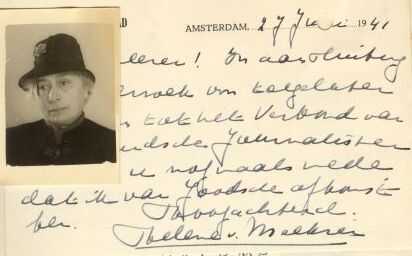 AD AMSTERDAM, 27 Juni 1941
eeren! In aansluiting
verzoek om toegelaten
tot het Verbond van
dsche Journalisten
u nogmaals mede
dat ik van Joodsche afkomst
ben. Hoogachtend.
Helene v. Meekren